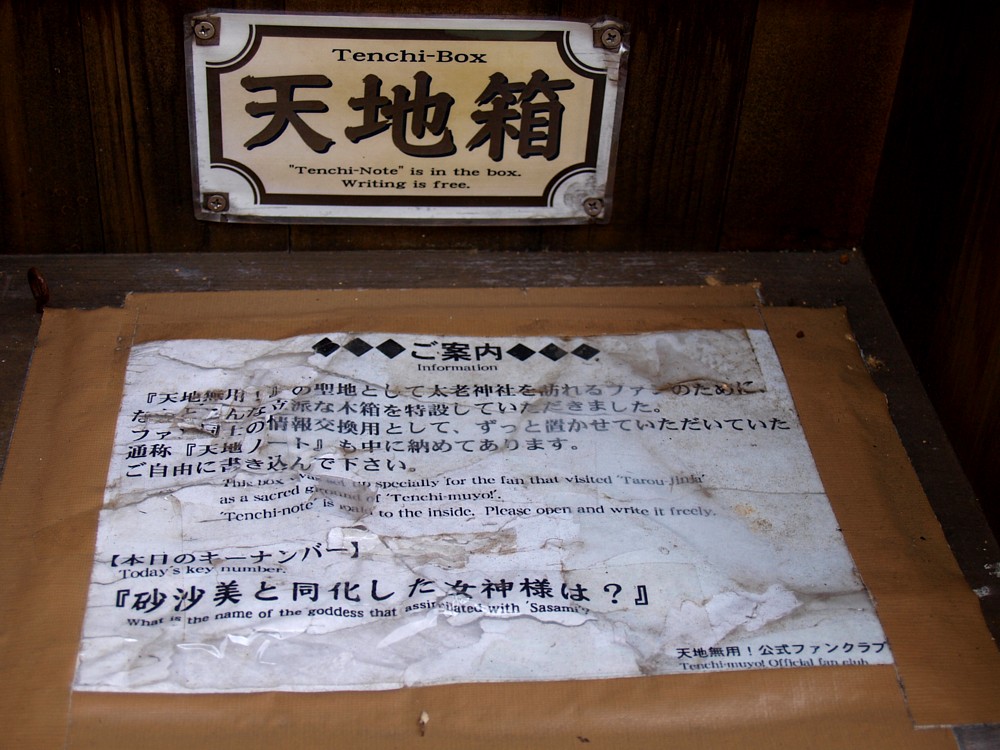 Tenchi-Box
天地箱
"Tenchi-Note" is in the box.
Writing is free.
◆◆◆ご案内◆◆◆
Information
『天地無用！』の聖地として太老神社を訪れるファンのために
な こんな立派な木箱を特設していただきました。
ファン同士の情報交換用として、ずっと置かせていただいていた
通称『天地ノート』も中に納めてあります。
ご自由に書き込んで下さい。
This box was set up specially for the fan that visited 'Tarou-jinja'
as a sacred ground of 'Tenchi-muyo!'.
'Tenchi-note' is to the inside. Please open and write it freely.
【本日のキーナンバー】
Today's key number.
『砂沙美と同化した女神様は？』
What is the name of the goddess that assimilated with 'Sasami'?
天地無用！公式ファンクラブ
Tenchi-muyo! Official fan club